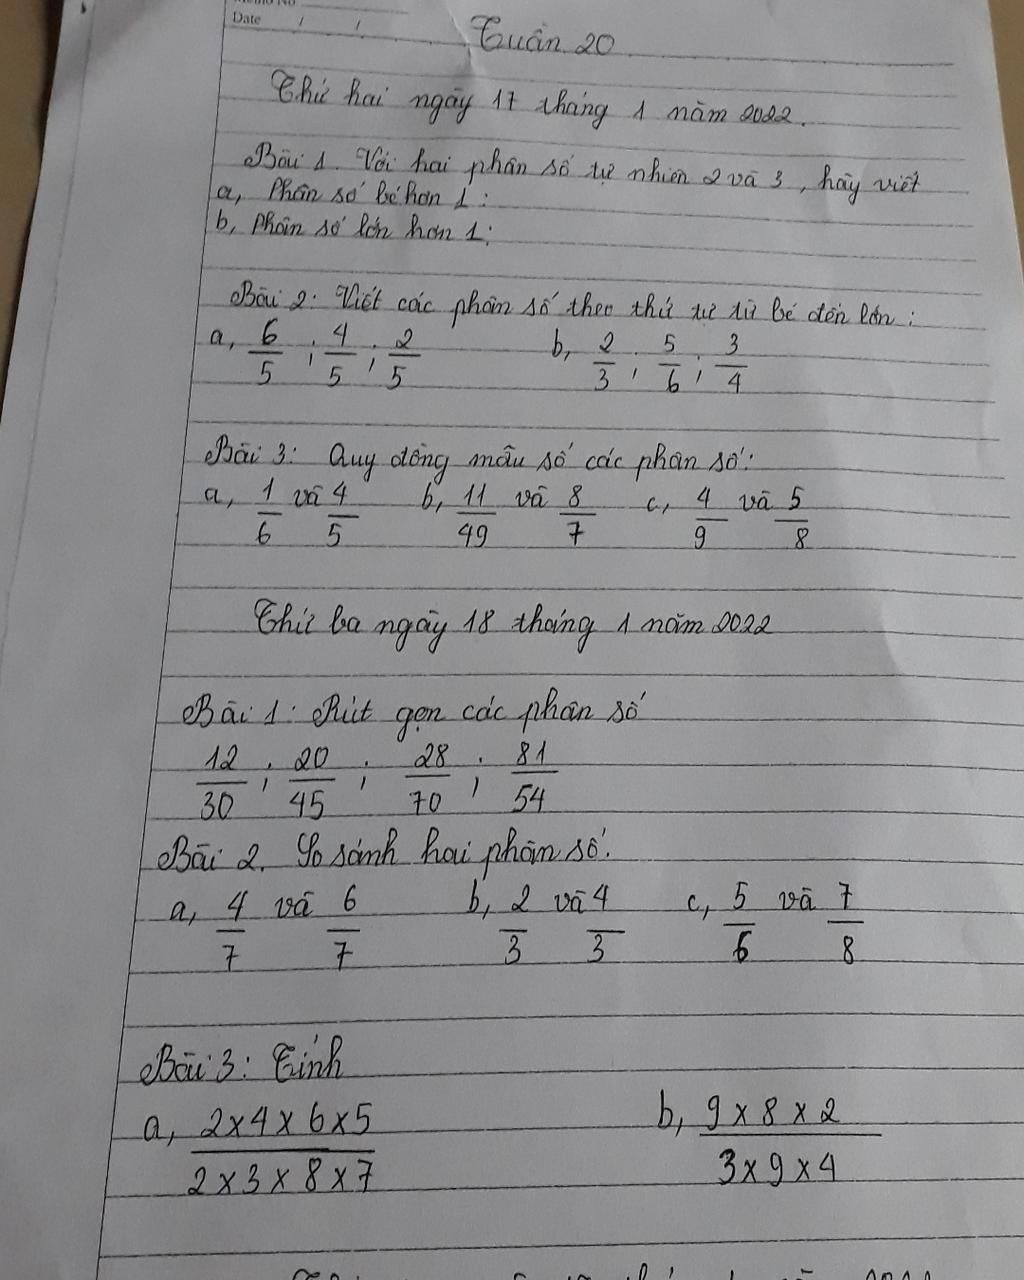 Date / /
Tuần 20
Thứ hai ngày 17 tháng 1 năm 2022.
Bài 1. Với hai phân số tự nhiên 2 và 3, hãy viết
a, Phân số bé hơn 1:
b, Phân số lớn hơn 1:
Bài 2. Viết các phân số theo thứ tự từ bé đến lớn:
a, 6/5 ; 4/5 ; 2/5 b, 2/3 ; 5/6 ; 3/4
Bài 3: Quy đồng mẫu số các phân số:
a, 1/6 và 4/5 b, 11/49 và 8/7 c, 4/9 và 5/8
Thứ ba ngày 18 tháng 1 năm 2022
Bài 1: Rút gọn các phân số
12/30 ; 20/45 ; 28/70 ; 81/54
Bài 2. So sánh hai phân số.
a, 4/7 và 6/7 b, 2/3 và 4/3 c, 5/6 và 7/8
Bài 3: Tính
a, 2 x 4 x 6 x 5 / 2 x 3 x 8 x 7 b, 9 x 8 x 2 / 3 x 9 x 4